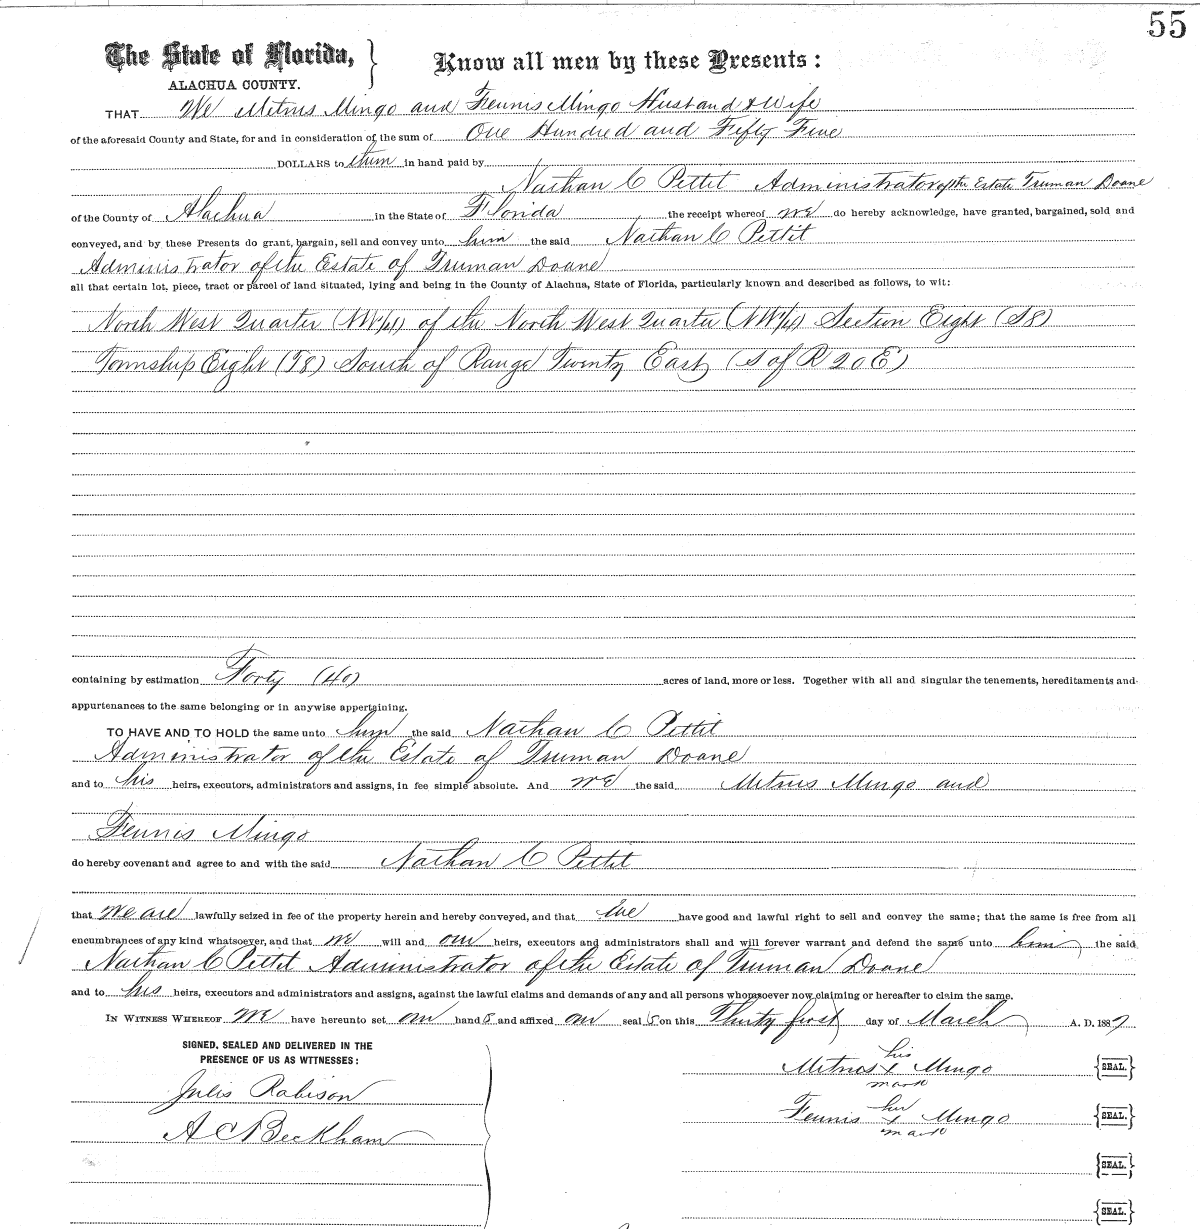 55
The State of Florida, } Know all men by these Presents:
ALACHUA COUNTY.
THAT We Mitnus Mingo and Fennis Mingo Husband & Wife
of the aforesaid County and State, for and in consideration of the sum of One Hundred and Fifty Five
DOLLARS to them in hand paid by
Nathan C Pettit Administrator of the Estate Truman Doane
of the County of Alachua in the State of Florida the receipt whereof we do hereby acknowledge, have granted, bargained, sold and
conveyed, and by these Presents do grant, bargain, sell and convey unto him the said Nathan C Pettit
Administrator of the Estate of Truman Doane
all that certain lot, piece, tract or parcel of land situated, lying and being in the County of Alachua, State of Florida, particularly known and described as follows, to wit:
North West Quarter (NW1/4) of the North West Quarter (NW1/4) Section Eight (S8)
Township Eight (T8) South of Range Twenty East (S of R 20 E)
containing by estimation Forty (40) acres of land, more or less. Together with all and singular the tenements, hereditaments and
appurtenances to the same belonging or in anywise appertaining.
TO HAVE AND TO HOLD the same unto him the said Nathan C Pettit
Administrator of the Estate of Truman Doane
and to his heirs, executors, administrators and assigns, in fee simple absolute. And we the said Mitnus Mingo and
Fennis Mingo
do hereby covenant and agree to and with the said Nathan C Pettit
that we are lawfully seized in fee of the property herein and hereby conveyed, and that we have good and lawful right to sell and convey the same; that the same is free from all
encumbrances of any kind whatsoever, and that we will and our heirs, executors and administrators shall and will forever warrant and defend the same unto him the said
Nathan C Pettit Administrator of the Estate of Truman Doane
and to his heirs, executors and administrators and assigns, against the lawful claims and demands of any and all persons whomsoever now claiming or hereafter to claim the same.
IN WITNESS WHEREOF We have hereunto set our hands and affixed our seals on this Thirty first day of March A. D. 1887
SIGNED, SEALED AND DELIVERED IN THE
PRESENCE OF US AS WITNESSES:
his
Mitnus x Mingo {SEAL.}
mark
Julis Robison
her
Fennis x Mingo {SEAL.}
mark
A C Beckham
{SEAL.}
{SEAL.}